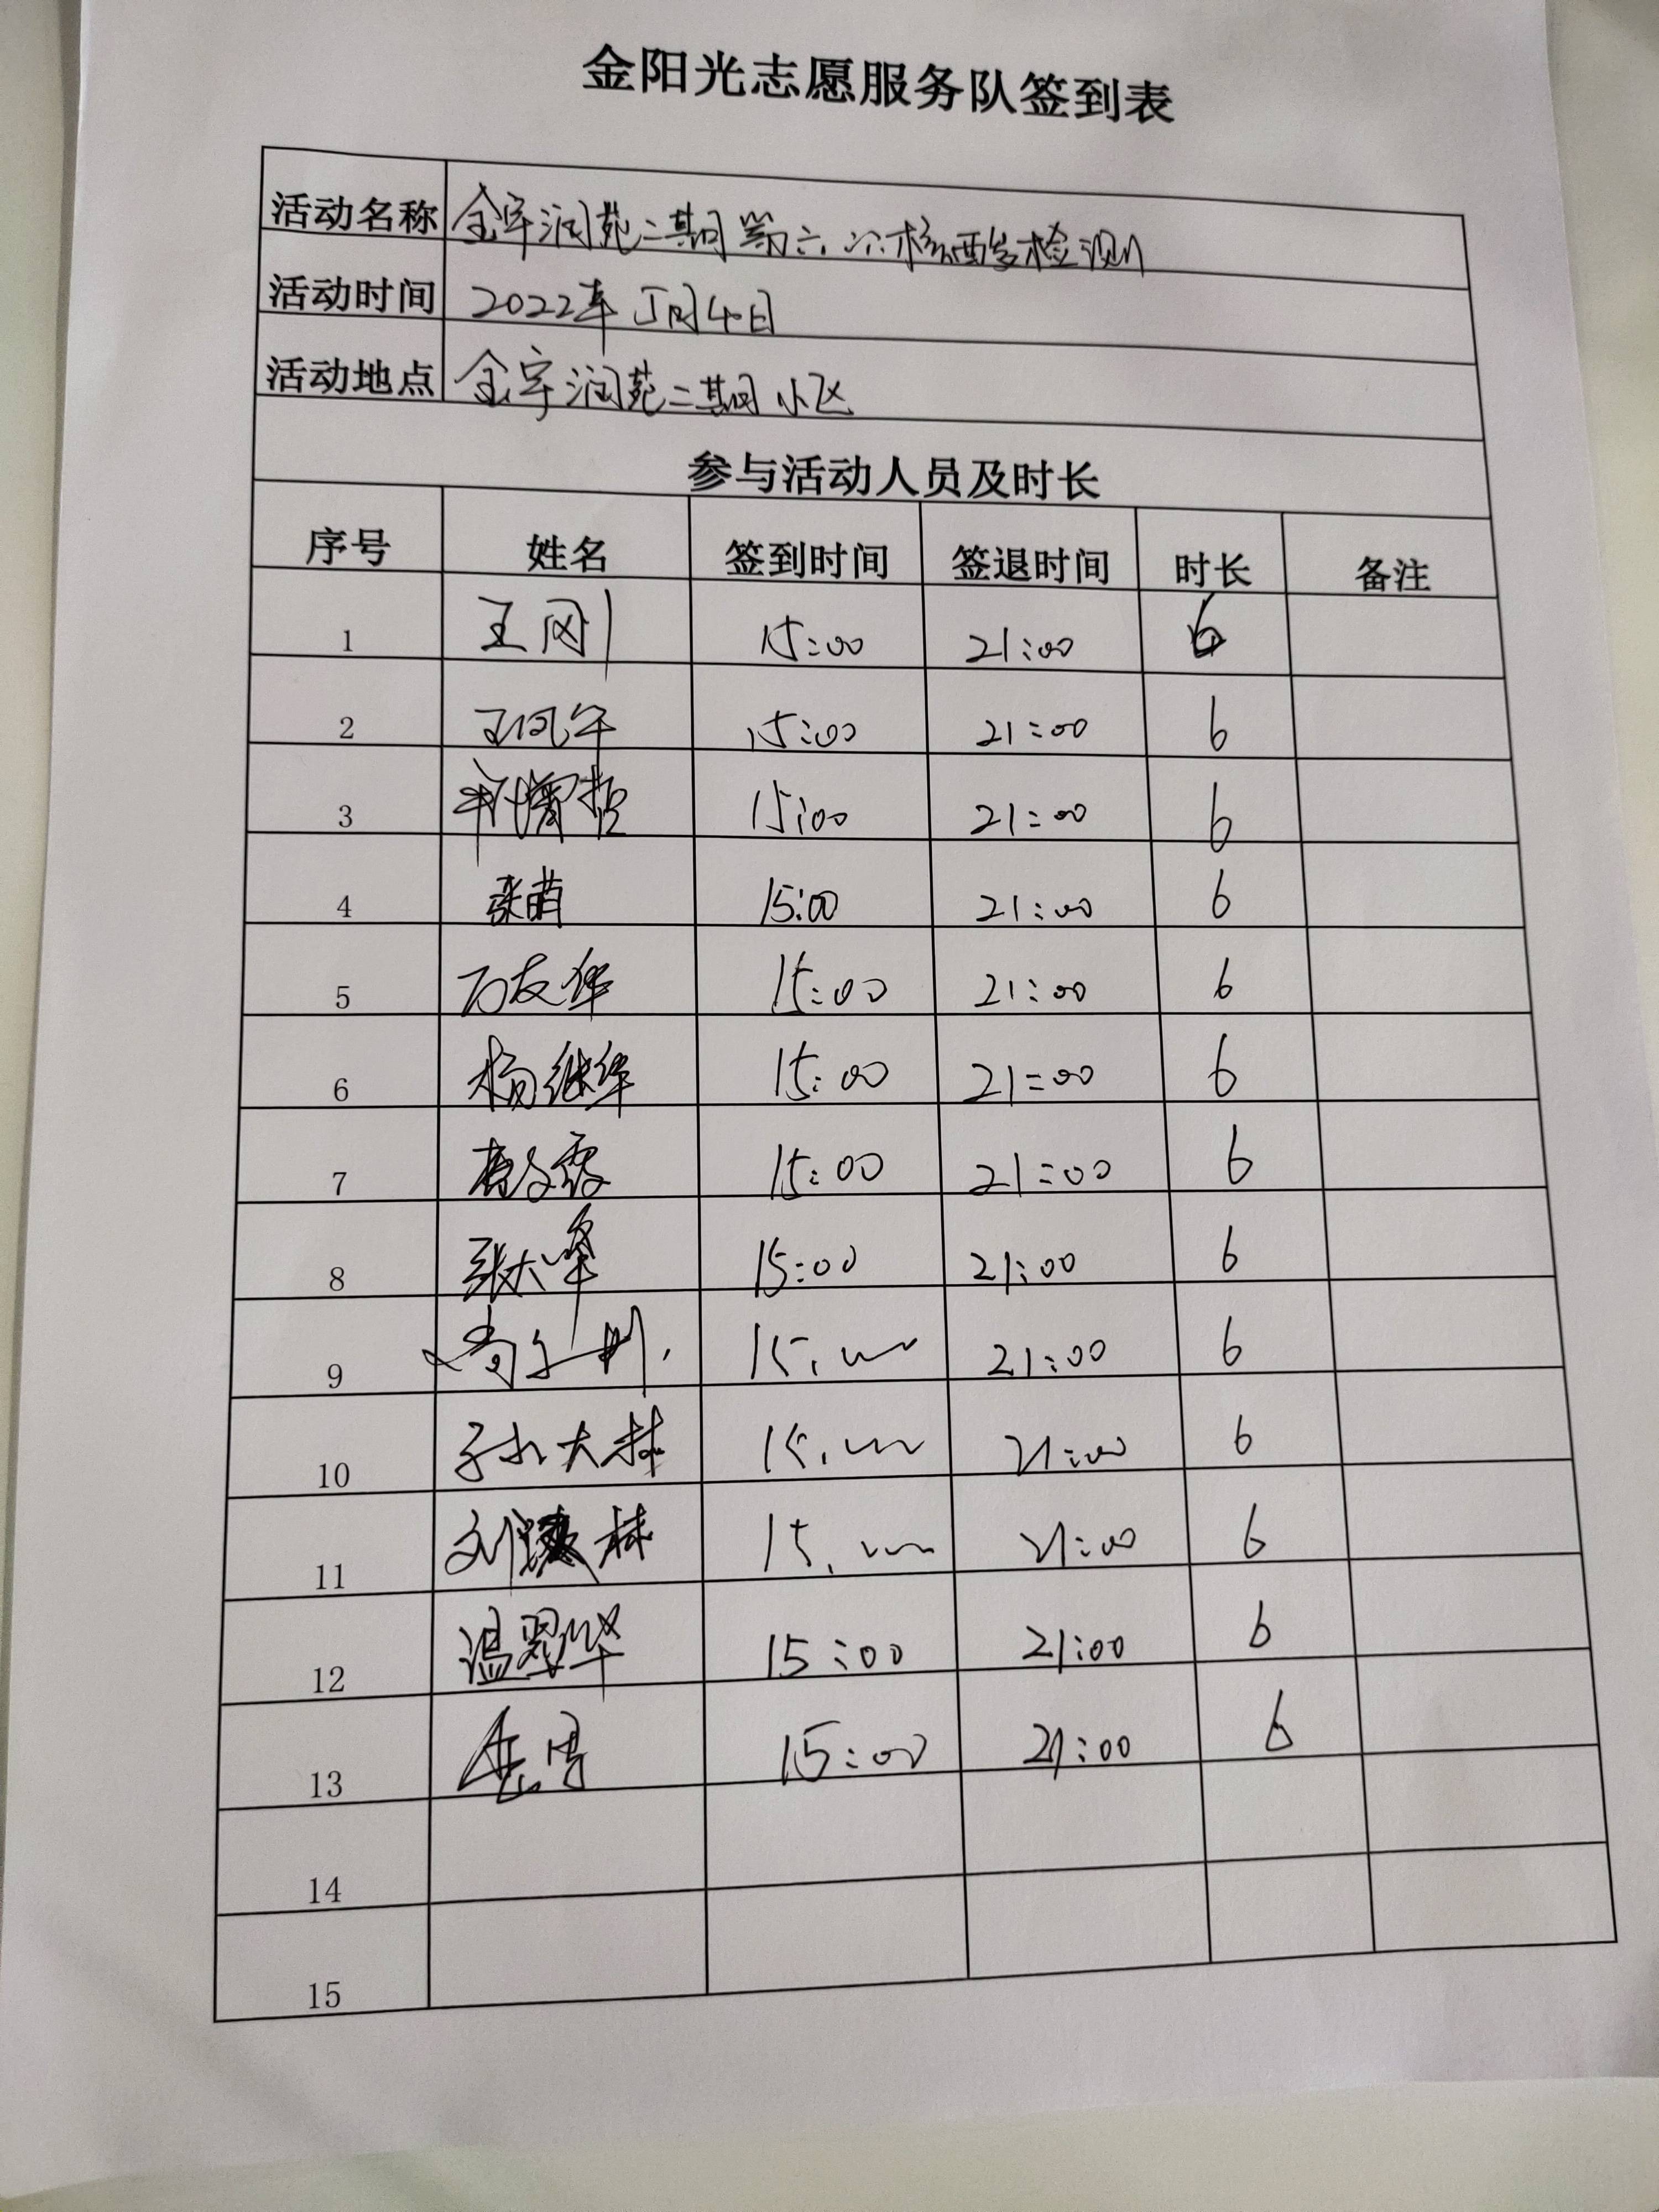 金阳光志愿服务队签到表
活动名称 金宇润苑二期第六次核酸检测
活动时间 2022年5月4日
活动地点 金宇润苑二期小区
参与活动人员及时长
序号 姓名 签到时间 签退时间 时长 备注
1 王刚 15:00 21:00 6
2 15:00 21:00 6
3 15:00 21:00 6
4 张萌 15:00 21:00 6
5 石友华 15:00 21:00 6
6 杨继华 15:00 21:00 6
7 15:00 21:00 6
8 张大峰 15:00 21:00 6
9 15:00 21:00 6
10 孙大林 15:00 21:00 6
11 15:00 21:00 6
12 温翠华 15:00 21:00 6
13 15:00 21:00 6
14
15